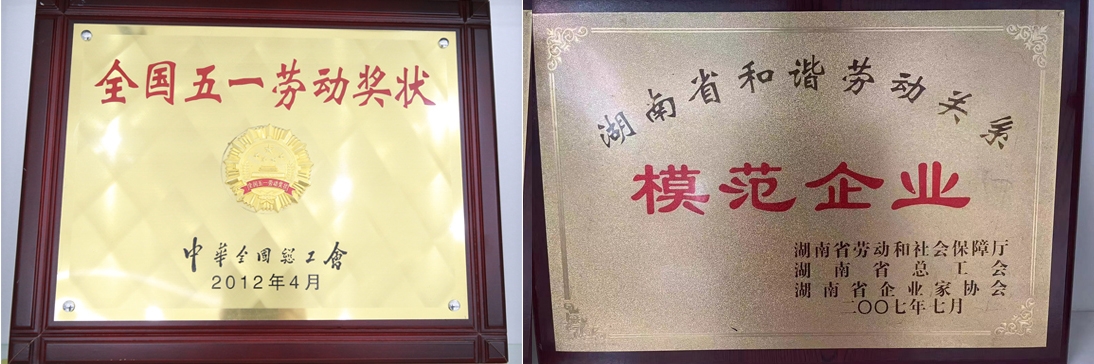 全国五一劳动奖状
中华全国总工會
2012年4月
湖南省和谐劳动关系
模范企业
湖南省劳动和社会保障厅
湖南省总工会
湖南省企业家协会
二〇〇七年七月